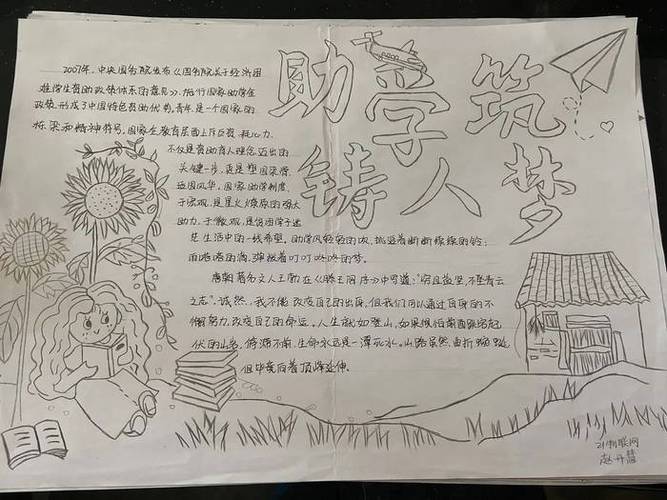 助学筑梦
铸人
2007年,中央国务院发布《国务院关于经济困
难学生资助政策体系的意见》,施行国家助学金
政策,形成了中国特色资助优势,青年,是一个国家的
栋梁和精神符号,国家在教育层面上斥巨资,耗心力,
不仅是资助育人理念迈出的
关键一步,更是塑国栄誉,
造国风华,国家助学制度,
于宏观,是星火燎原的强大
助力,于微观,是贫困学子迷
茫生活中的一线希望,助学风轻轻的吹,挑逗着断断续续的铃;
雨嗒嗒的滴,弹拨着叮叮咚咚的梦。
唐朝著名文人王勃在《滕王阁序》中写道:"穷且益坚,不坠青云
之志"诚然,我不能改变自己的出身,但我们可以通过自身的不
懈努力,改变自己的命运,人生就如登山,如果惧怕着面跌宕起
伏的山峦,徘徊不前,生命永远是一潭死水。山路虽然曲折蜿蜒,
但毕竟向着顶峰延伸。
21物联网
赵丹慧